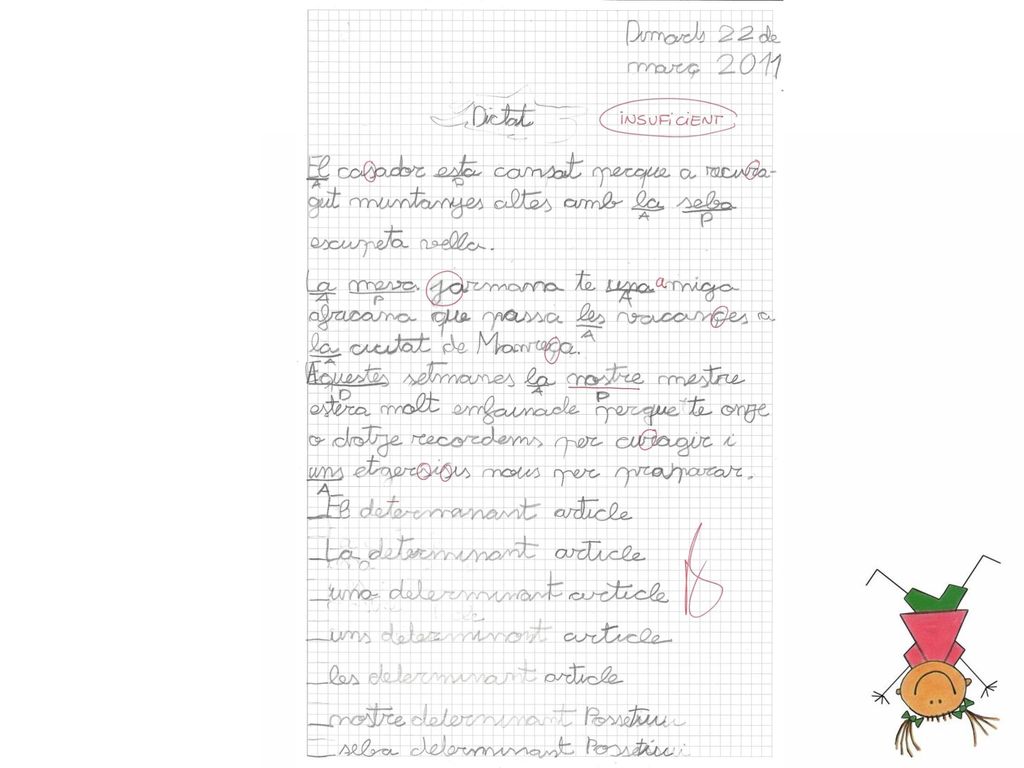 Dimards 22 de
març 2011
Dictat
INSUFICIENT
El casador esta cansat perque a recura-
gut muntanyes altes amb la seba
A P A P
escupeta vella.
La meva jarmana te una amiga
A P A
africana que passa les vacançes a
A
la ciutat de Manreça.
A
Aquestes setmanes la nostre mestre
D A P
estera molt enfainade perque te onze
o dotze recordems per curagir i
uns etgersisis nous per praparar.
A
El determanant article
La determinant article
una determinant article
uns determinant article
les determinant article
nostre determinant
seba determinant